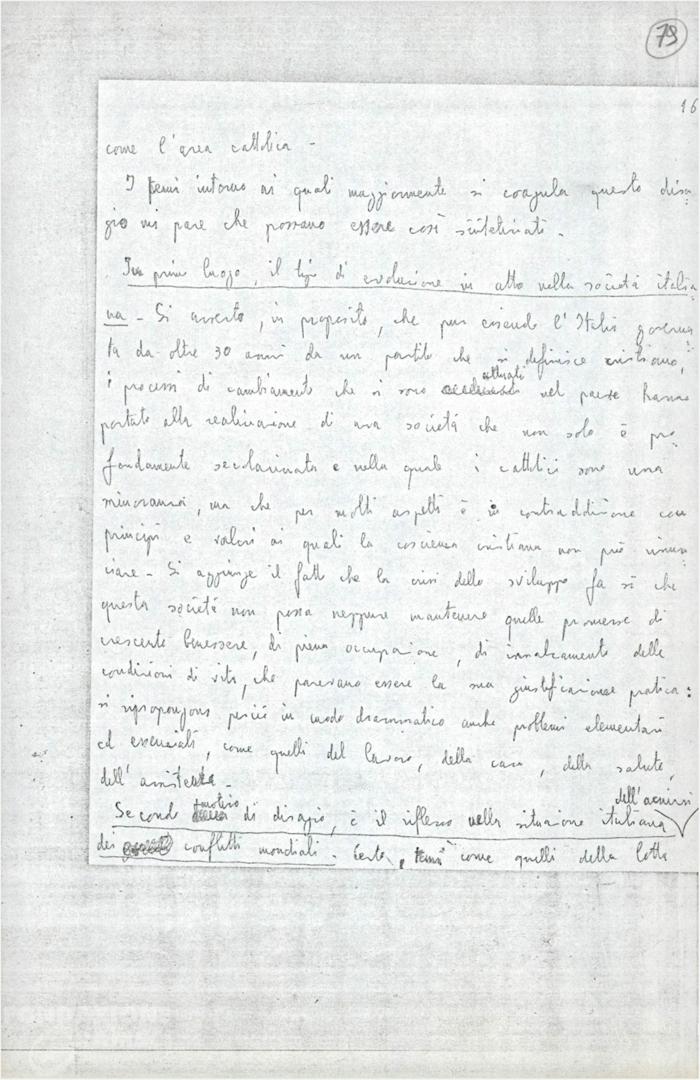 79
16
come l'area cattolica -
I temi intorno ai quali maggiormente si coagula questo disa
gio mi pare che possano essere così sintetizzati.
In primo luogo, il tipo di evoluzione in atto nella società italia
na - Si avverte, in proposito, che pur essendo l'Italia governa
ta da oltre 30 anni da un partito che si definisce cristiano,
attuati
i processi di cambiamento che si sono nel paese hanno
portato alla realizzazione di una società che non solo è pro
fondamente secolarizzata e nella quale i cattolici sono una
minoranza, ma che per molti aspetti è in contraddizione con
principi e valori ai quali la coscienza cristiana non può rinun
ciare - Si aggiunge il fatto che la crisi dello sviluppo fa sì che
questa società non possa neppure mantenere quelle promesse di
crescente benessere, di piena occupazione, di innalzamento delle
condizioni di vita, che parevano essere la sua giustificazione pratica:
si ripropongono perciò in modo drammatico anche problemi elementari
ed essenziali, come quelli del lavoro, della casa, della salute,
dell'assistenza -
motivo dell'acuirsi
Secondo di disagio, è il riflesso nella situazione italiana
dei conflitti mondiali. Certo, temi come quelli della lotta